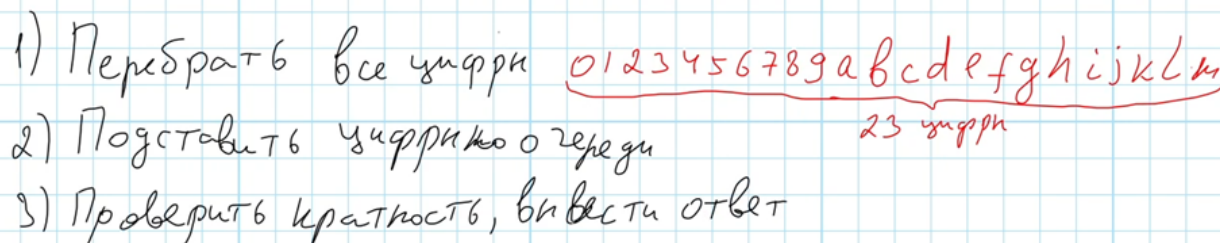 1) Перебрать все цифры 0123456789abcdefghijklm
23 цифры
2) Подставить цифры по очереди
3) Проверить кратность, вывести ответ